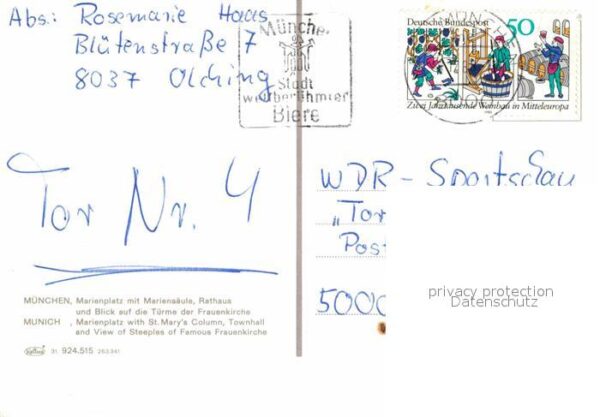 Abs: Rosemarie Haas
Blütenstraße 7
8037 Olching
München
Stadt
weltberühmter
Biere
Deutsche Bundespost 50
Zwei Jahrtausende Weinbau in Mitteleuropa
Tor Nr. 4
WDR - Sportschau
"Tor
Post
5000
privacy protection
Datenschutz
MÜNCHEN, Marienplatz mit Mariensäule, Rathaus
und Blick auf die Türme der Frauenkirche
MUNICH , Marienplatz with St. Mary's Column, Townhall
and View of Steeples of Famous Frauenkirche
31 924.515 263341